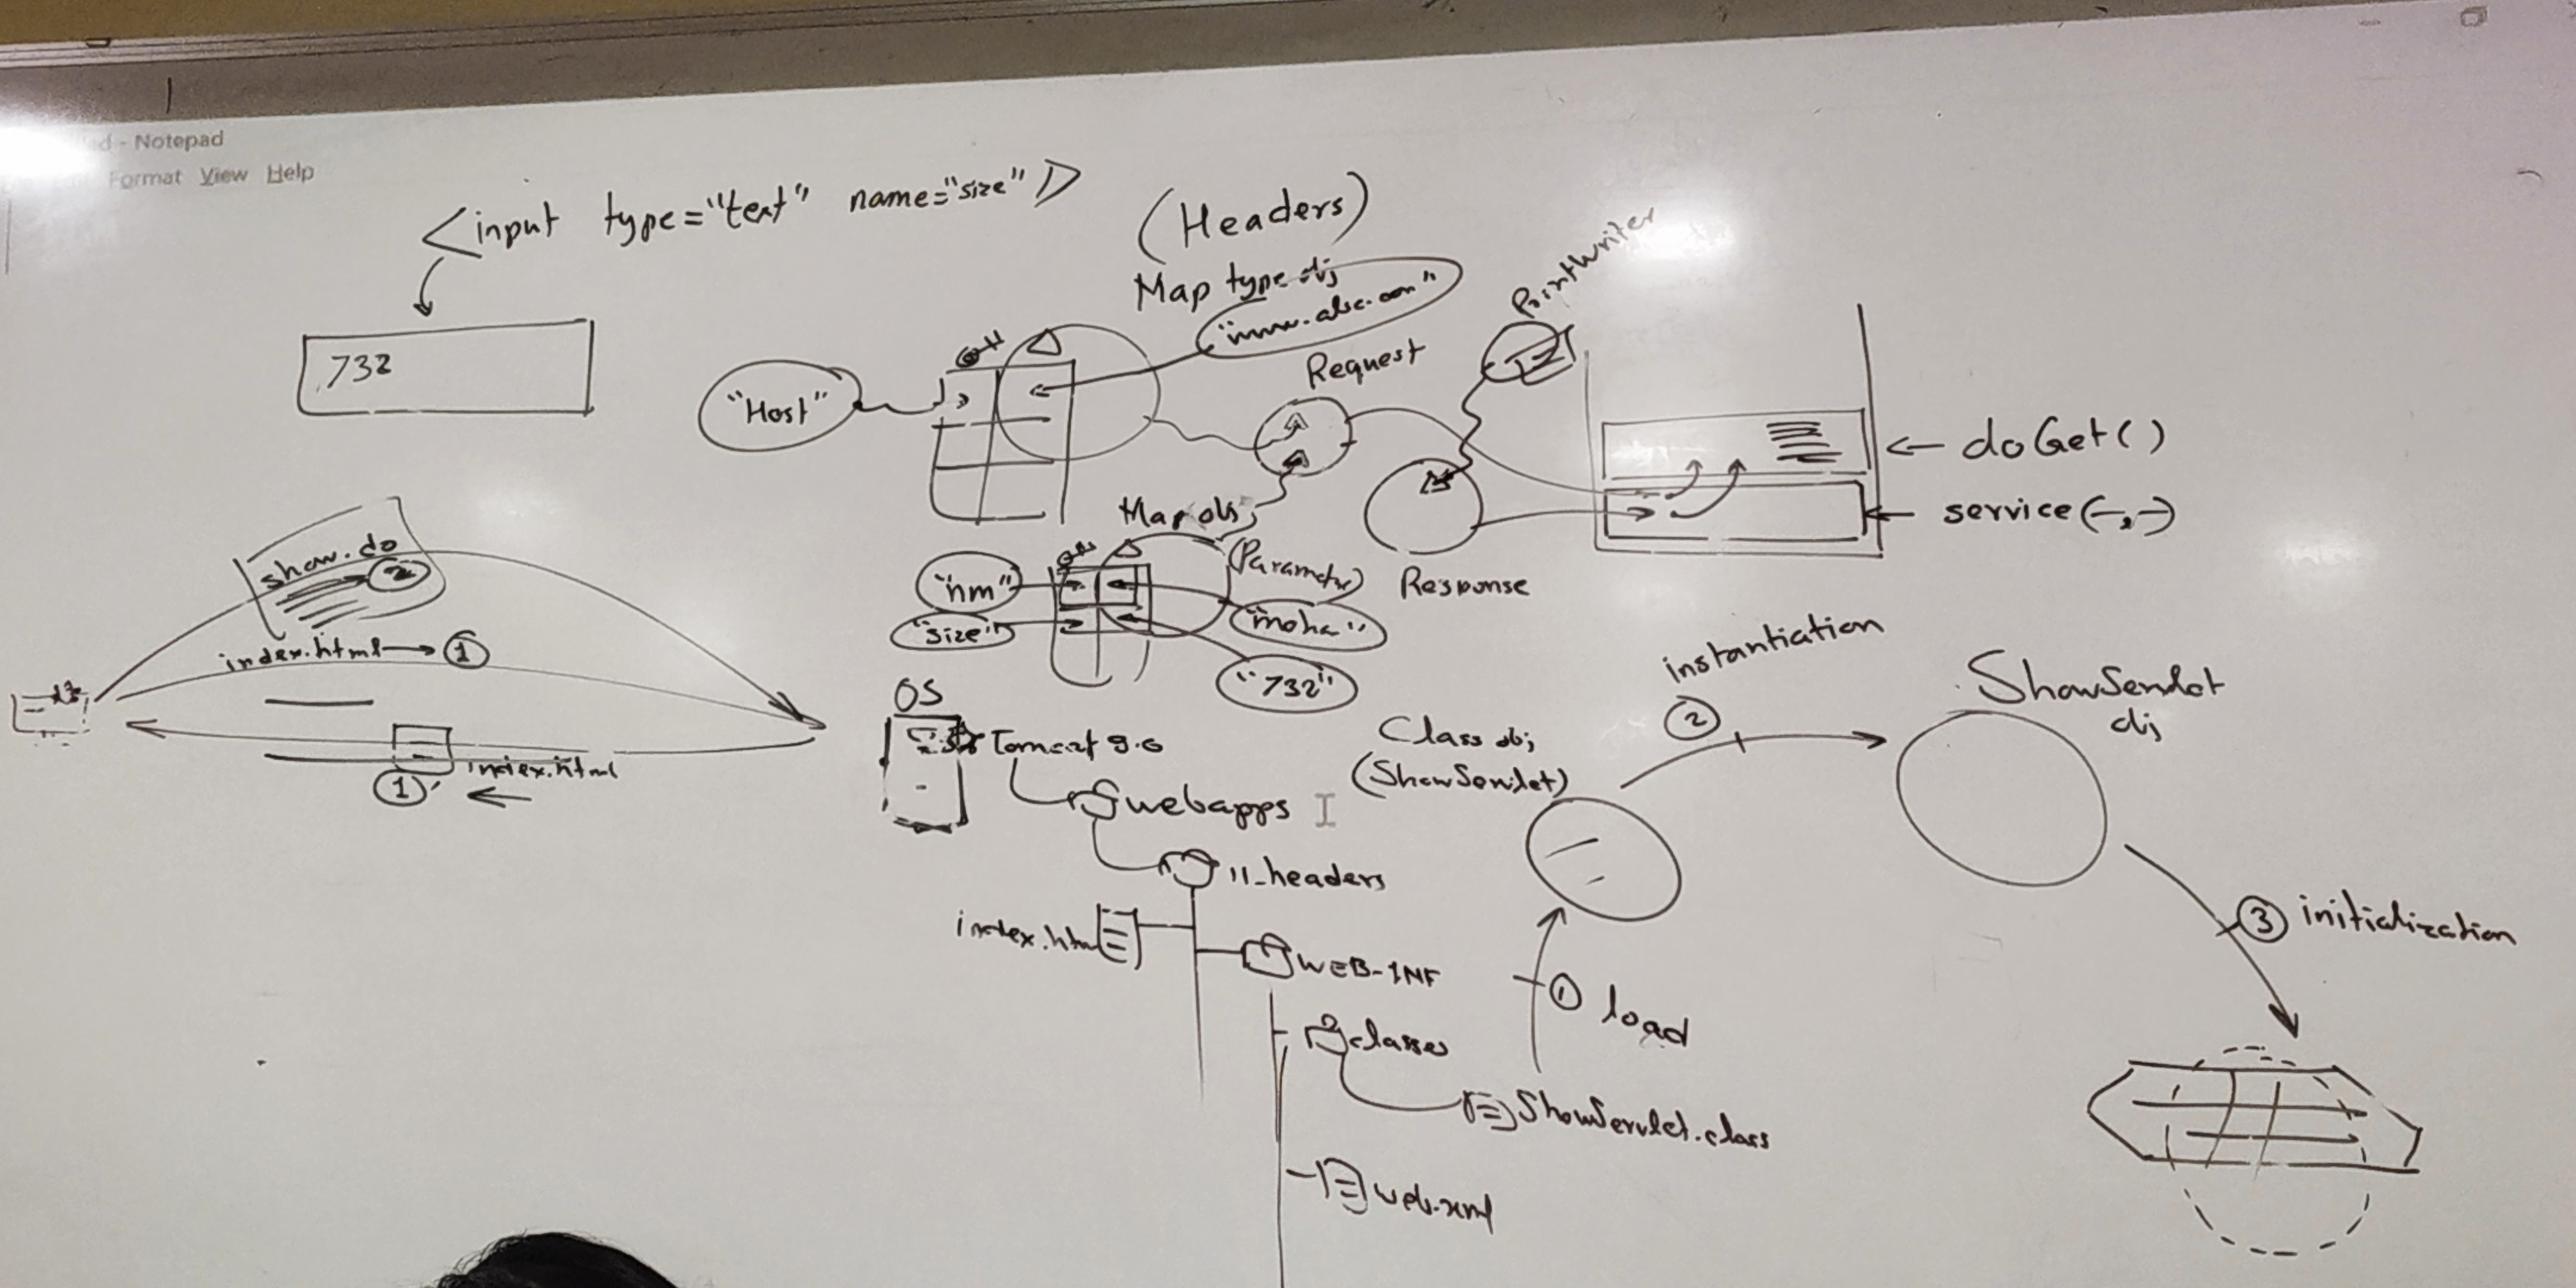 - Notepad
Format View Help
<input type="text" name="size">
732
(Headers)
Map type obj
"www.abc.com"
"Host"
Request
PrintWriter
doGet()
service(-,-)
Map obj
(Parameter)
Response
"nm"
"moha"
"size"
"732"
show.do
2
index.html → 1
1
index.html
OS
Tomcat 9.0
webapps
11_headers
index.html
WEB-INF
classes
ShowServlet.class
web.xml
1 load
Class obj
(ShowServlet)
instantiation
2
ShowServlet
obj
3 initialization